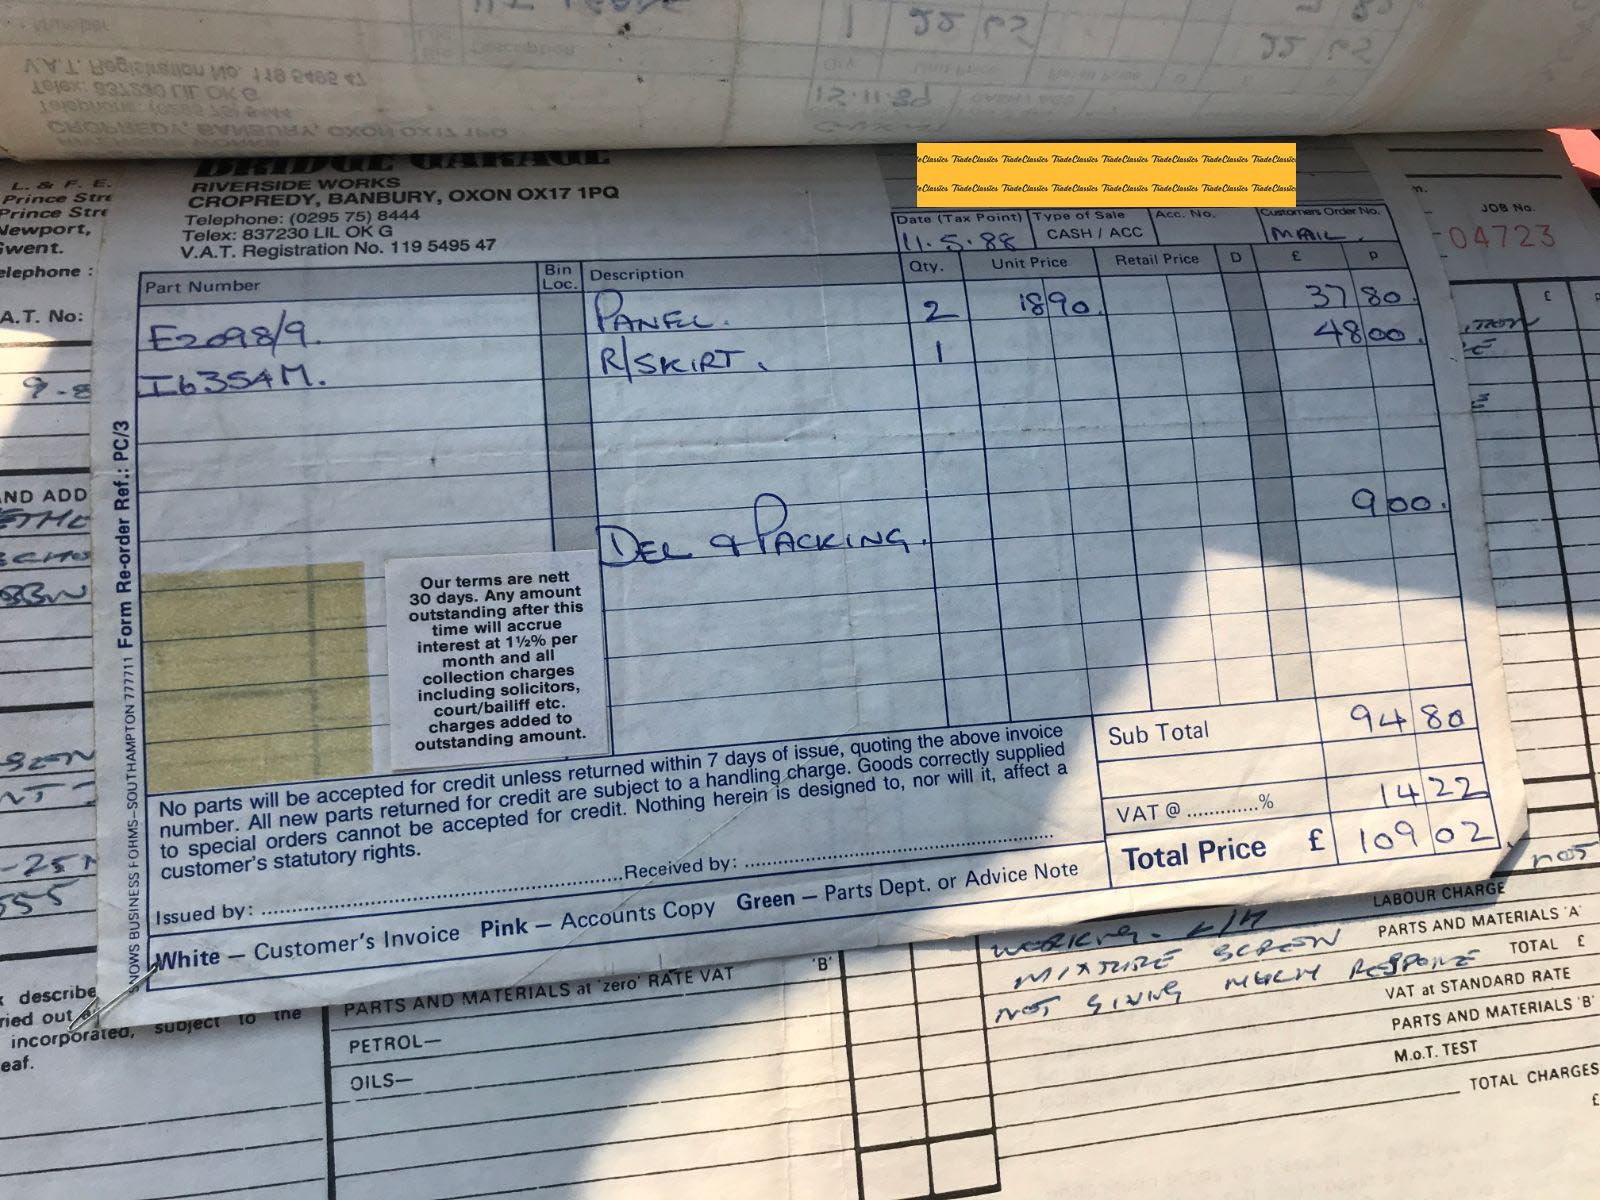 BRIDGE GARAGE
RIVERSIDE WORKS
CROPREDY, BANBURY, OXON OX17 1PQ
Telephone: (0295 75) 8444
Telex: 837230 LIL OK G
V.A.T. Registration No. 119 5495 47
TradeClassics TradeClassics TradeClassics TradeClassics TradeClassics TradeClassics
TradeClassics TradeClassics TradeClassics TradeClassics TradeClassics TradeClassics
Date (Tax Point) Type of Sale Acc. No. Customers Order No.
11.5.88 CASH / ACC MAIL.
Part Number Bin Loc. Description Qty. Unit Price Retail Price D £ p
E2098/9. PANEL. 2 18 90. 37 80.
I6354M. R/SKIRT. 1 48 00.
DEL & PACKING. 9 00.
Our terms are nett
30 days. Any amount
outstanding after this
time will accrue
interest at 1½% per
month and all
collection charges
including solicitors,
court/bailiff etc.
charges added to
outstanding amount.
No parts will be accepted for credit unless returned within 7 days of issue, quoting the above invoice
number. All new parts returned for credit are subject to a handling charge. Goods correctly supplied
to special orders cannot be accepted for credit. Nothing herein is designed to, nor will it, affect a
customer's statutory rights.
Sub Total 94 80
VAT @ ............% 14 22
Total Price £ 109 02
Issued by: ........ Received by: ........
White — Customer's Invoice Pink — Accounts Copy Green — Parts Dept. or Advice Note
SNOWS BUSINESS FORMS–SOUTHAMPTON 777711 Form Re-order Ref.: PC/3
CROPREDY, BANBURY, OXON OX17 1PQ
Telephone: (0295 75) 8444
Telex: 837230 LIL OK G
V.A.T. Registration No. 119 5495 47
Number
Description
1 22 53
22 53
L. & F. E.
Prince Stre
Prince Stre
Newport,
Gwent.
elephone :
A.T. No:
9-8
ND ADD
JOB No.
04723
£
describe
ried out
incorporated, subject to the
eaf.
PARTS AND MATERIALS at 'zero' RATE VAT 'B'
PETROL—
OILS—
NOT
WORKING.
MIXTURE SCREW
NOT GIVING MUCH RESPONSE
LABOUR CHARGE
PARTS AND MATERIALS 'A'
TOTAL £
VAT at STANDARD RATE
PARTS AND MATERIALS 'B'
M.o.T. TEST
TOTAL CHARGES
£